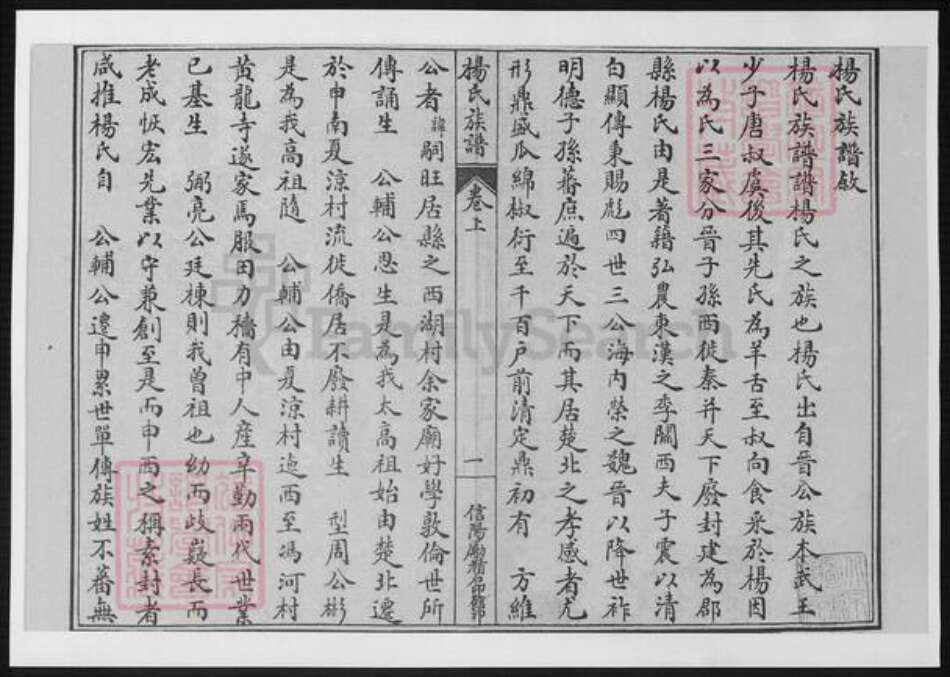 楊氏族譜敘
楊氏族譜譜楊氏之族也楊氏出自晉公族本武王
少子唐叔虞後其先氏為羊舌至叔向食采於楊因
以為氏三家分晉子孫西徙秦并天下廢封建為郡
縣楊氏由是著籍弘農東漢之季關西夫子震以清
白顯傳秉賜彪四世三公海內榮之魏晉以降世祚
明德子孫蕃庶遍於天下而其居楚北之孝感者尤
形鼎盛瓜綿椒衍至千百户前清定鼎初有 方維
楊氏族譜 卷上 一 信陽勵精印館印
公者諱嗣旺居縣之西湖村余家廟好學敦倫世所
傳誦生 公輔公恩生是為我太高祖始由楚北遷
於申南夏涼村流徙僑居不廢耕讀生 型周公彬
是為我高祖隨 公輔公由夏涼村迤西至馮河村
黃龍寺遂家馬服田力穡有中人產辛勤兩代世業
已基生 弼亮公廷棟則我曾祖也幼而歧嶷長而
老成恢宏先業以守兼創至是而申西之稱素封者
咸推楊氏自 公輔公遷申累世單傳族姓不蕃無
FamilySearch